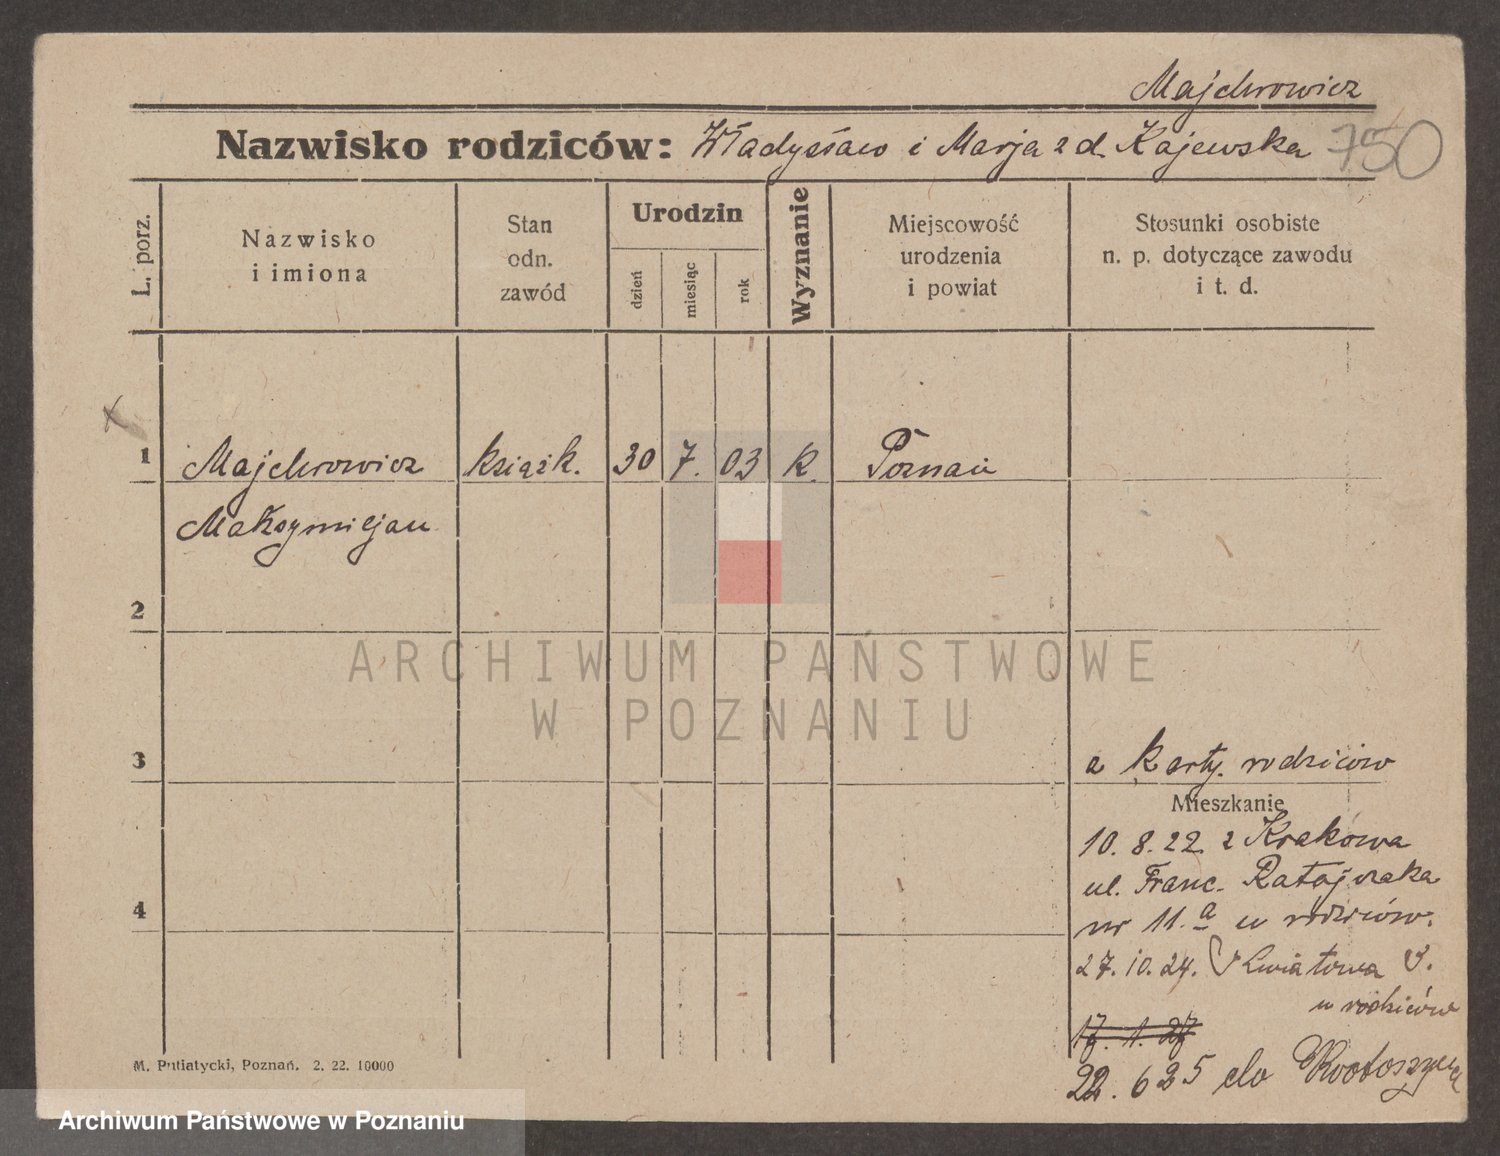 Majchrowicz
Nazwisko rodziców: Władysław i Marja z d. Kajewska 750
L. porz.
Nazwisko
i imiona
Stan
odn.
zawód
Urodzin
dzień
miesiąc
rok
Wyznanie
Miejscowość
urodzenia
i powiat
Stosunki osobiste
n. p. dotyczące zawodu
i t. d.
1 Majchrowicz książk. 30 7. 03 k. Poznań
Maksymiljan
2
ARCHIWUM PAŃSTWOWE
W POZNANIU
3
z karty rodziców
Mieszkanie
10. 8. 22 z Krakowa
ul. Franc. Ratajczaka
4
nr 11.a u rodziców.
27. 10. 24. Kwiatowa 8.
u rodziców
17. 1. 27
22. 6 25 do Krotoszyna
M. Putiatycki, Poznań. 2. 22. 10000
Archiwum Państwowe w Poznaniu